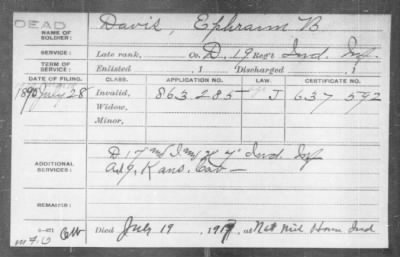 DEAD
NAME OF SOLDIER: Davis, Ephraim B
SERVICE: Late rank, Co. D, 19 Reg't Ind. Inf.
TERM OF SERVICE: Enlisted , 1 Discharged , 1
DATE OF FILING. CLASS. APPLICATION NO. LAW. CERTIFICATE NO.
1890 July 28 Invalid, 863 285 J 637 592
Widow,
Minor,
ADDITIONAL SERVICES: D 17 Ind. Inf
9, Kans. Cav —
REMARKS:
Died July 19, 191 , at Nat Mil Home Ind